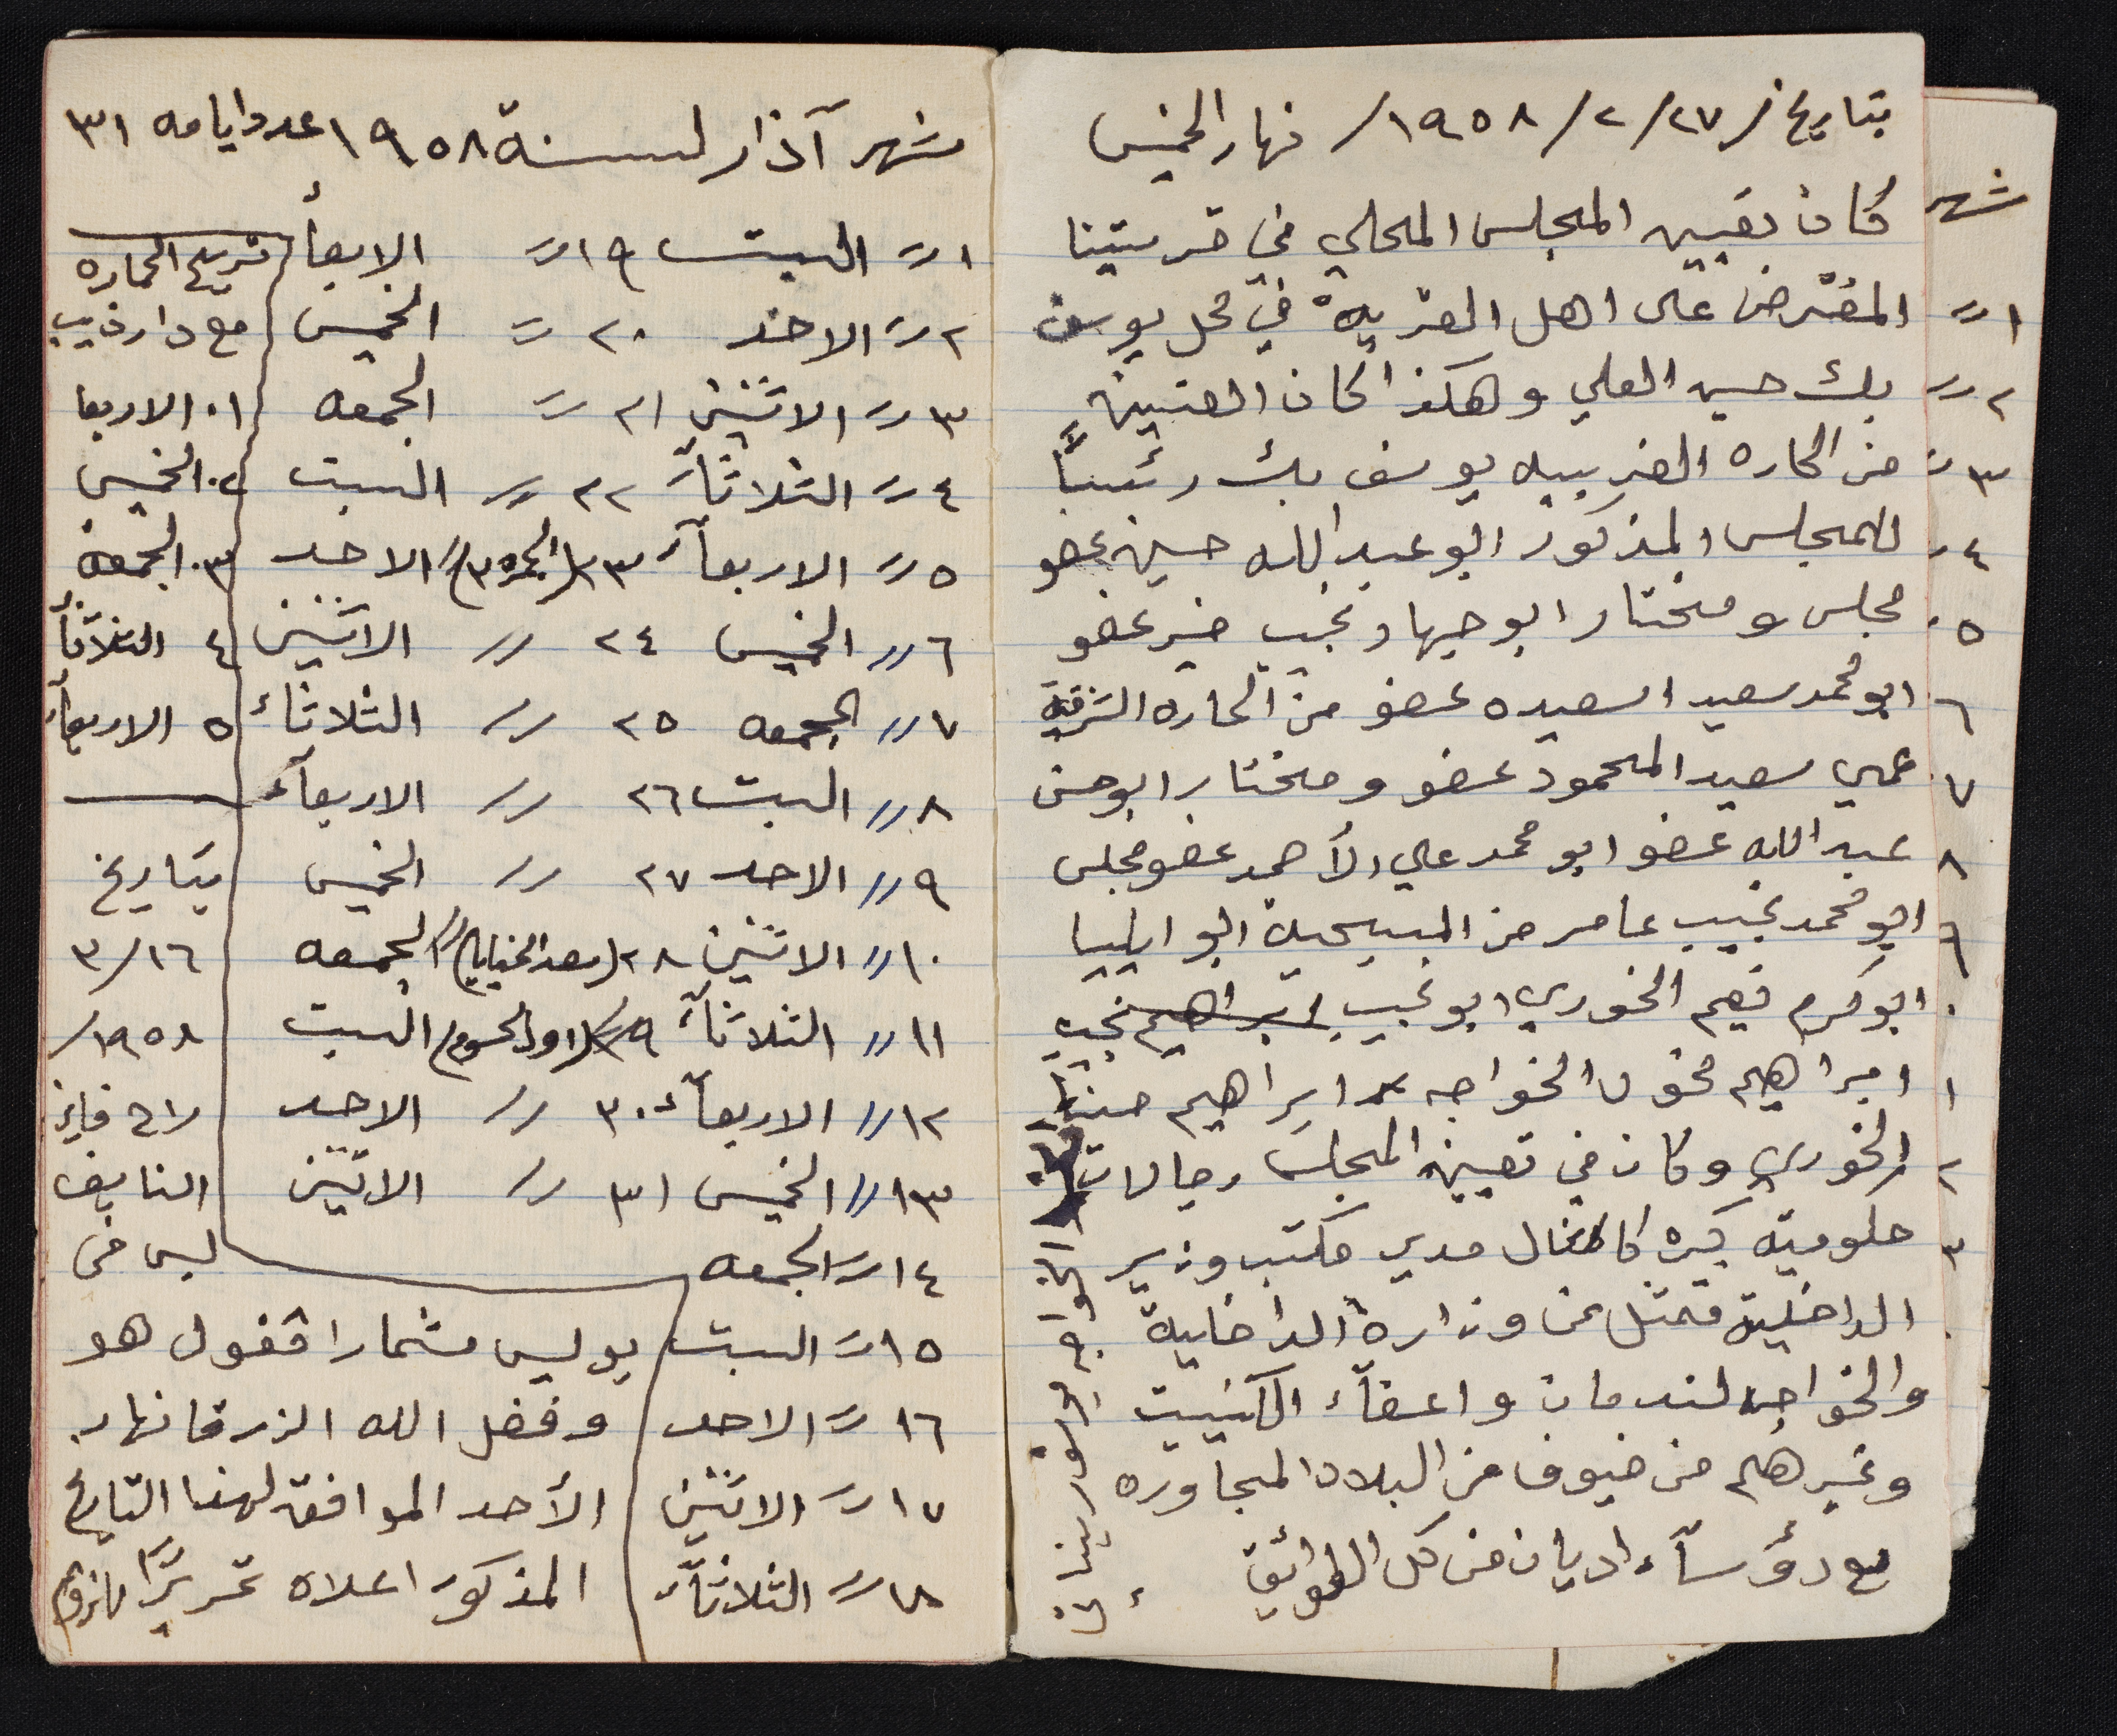 بتاريخ /٢٧/٢/١٩٥٨/ نهار الخميس
كان تعيين المجلس المحلي في قريتنا
المفترض على اهل القرية في محل يوسف
بك حسين العلي وهكذا كان التعيين
من الحاره الغربيه يوسف بك رئيساً
للمجلس المذكور ابو عبدالله حسين عضو
مجلس ومختار ابو جهاد نجيب خير عضو
ابو محمد سعيد السعيده عضو من الحاره الشرقية
عمي سعيد المحمود عضو ومختار ابو حسن
عبدالله عضو ابو محمد علي الأحمد عضو مجلس
ابو محمد نجيب عامر من المسيحية ابو ايليا
ابو كرم نعيم الخوري ابو نجيب ابراهيم نجيب
ابراهيم مخول الخواجه ابراهيم حنا
الخوري وكان في تعيين المجلس رجالات
حكومية كبيره امثال مدير مكتب وزير
الداخلية ممثل عن وزارة الداخلية
والخواجه لندمان واعضآء الكنيست
وغيرهم من ضيوف من البلاد المجاوره
مع رؤسآء اديان من كل الطوائف
الخواجه
شهر
١ //
٢ //
٣
٤
٥
٦
٧
٨
٩
٠
١
٢
٣
شهر آذار لسنة ١٩٥٨ عدد ايامه ٣١
١ // السبت ١٩ // الاربعأ
٢ // الاحد ٢٠ // الخميس
٣ // الاثنين ٢١ // الجمعه
٤ // الثلاثآء ٢٢ // السبت
٥ // الاربعآء ٢٣ // الاحد
٦ // الخميس ٢٤ // الاثنين
٧ // الجمعه ٢٥ // الثلاثاء
٨ // السبت ٢٦ // الاربعآء
٩ // الاحد ٢٧ // الخميس
١٠ // الاثنين ٢٨ // الجمعه
١١ // الثلاثآء ٢٩ (اول الحسوم) السبت
١٢ // الاربعآء ٣٠ // الاحد
١٣ // الخميس ٣١ // الاثنين
١٤ // الجمعه
١٥ // السبت
١٦ // الاحد
١٧ // الاثنين
١٨ // الثلاثآء
تربيع الحماره
مع دار ذيب
٠١ الاربعا
٠٢ الخميس
٠٣ الجمعة
٤ الثلاثأ
٥ الاربعأ
بتاريخ
١٦/٣
١٩٥٨/
راح فايز
النايف
لبس من
بوليس مشمار اقفول هو
وفضل الله الزرقا نهار
الأحد الموافق لهذا التاريخ
المذكور اعلاه تحريرًا